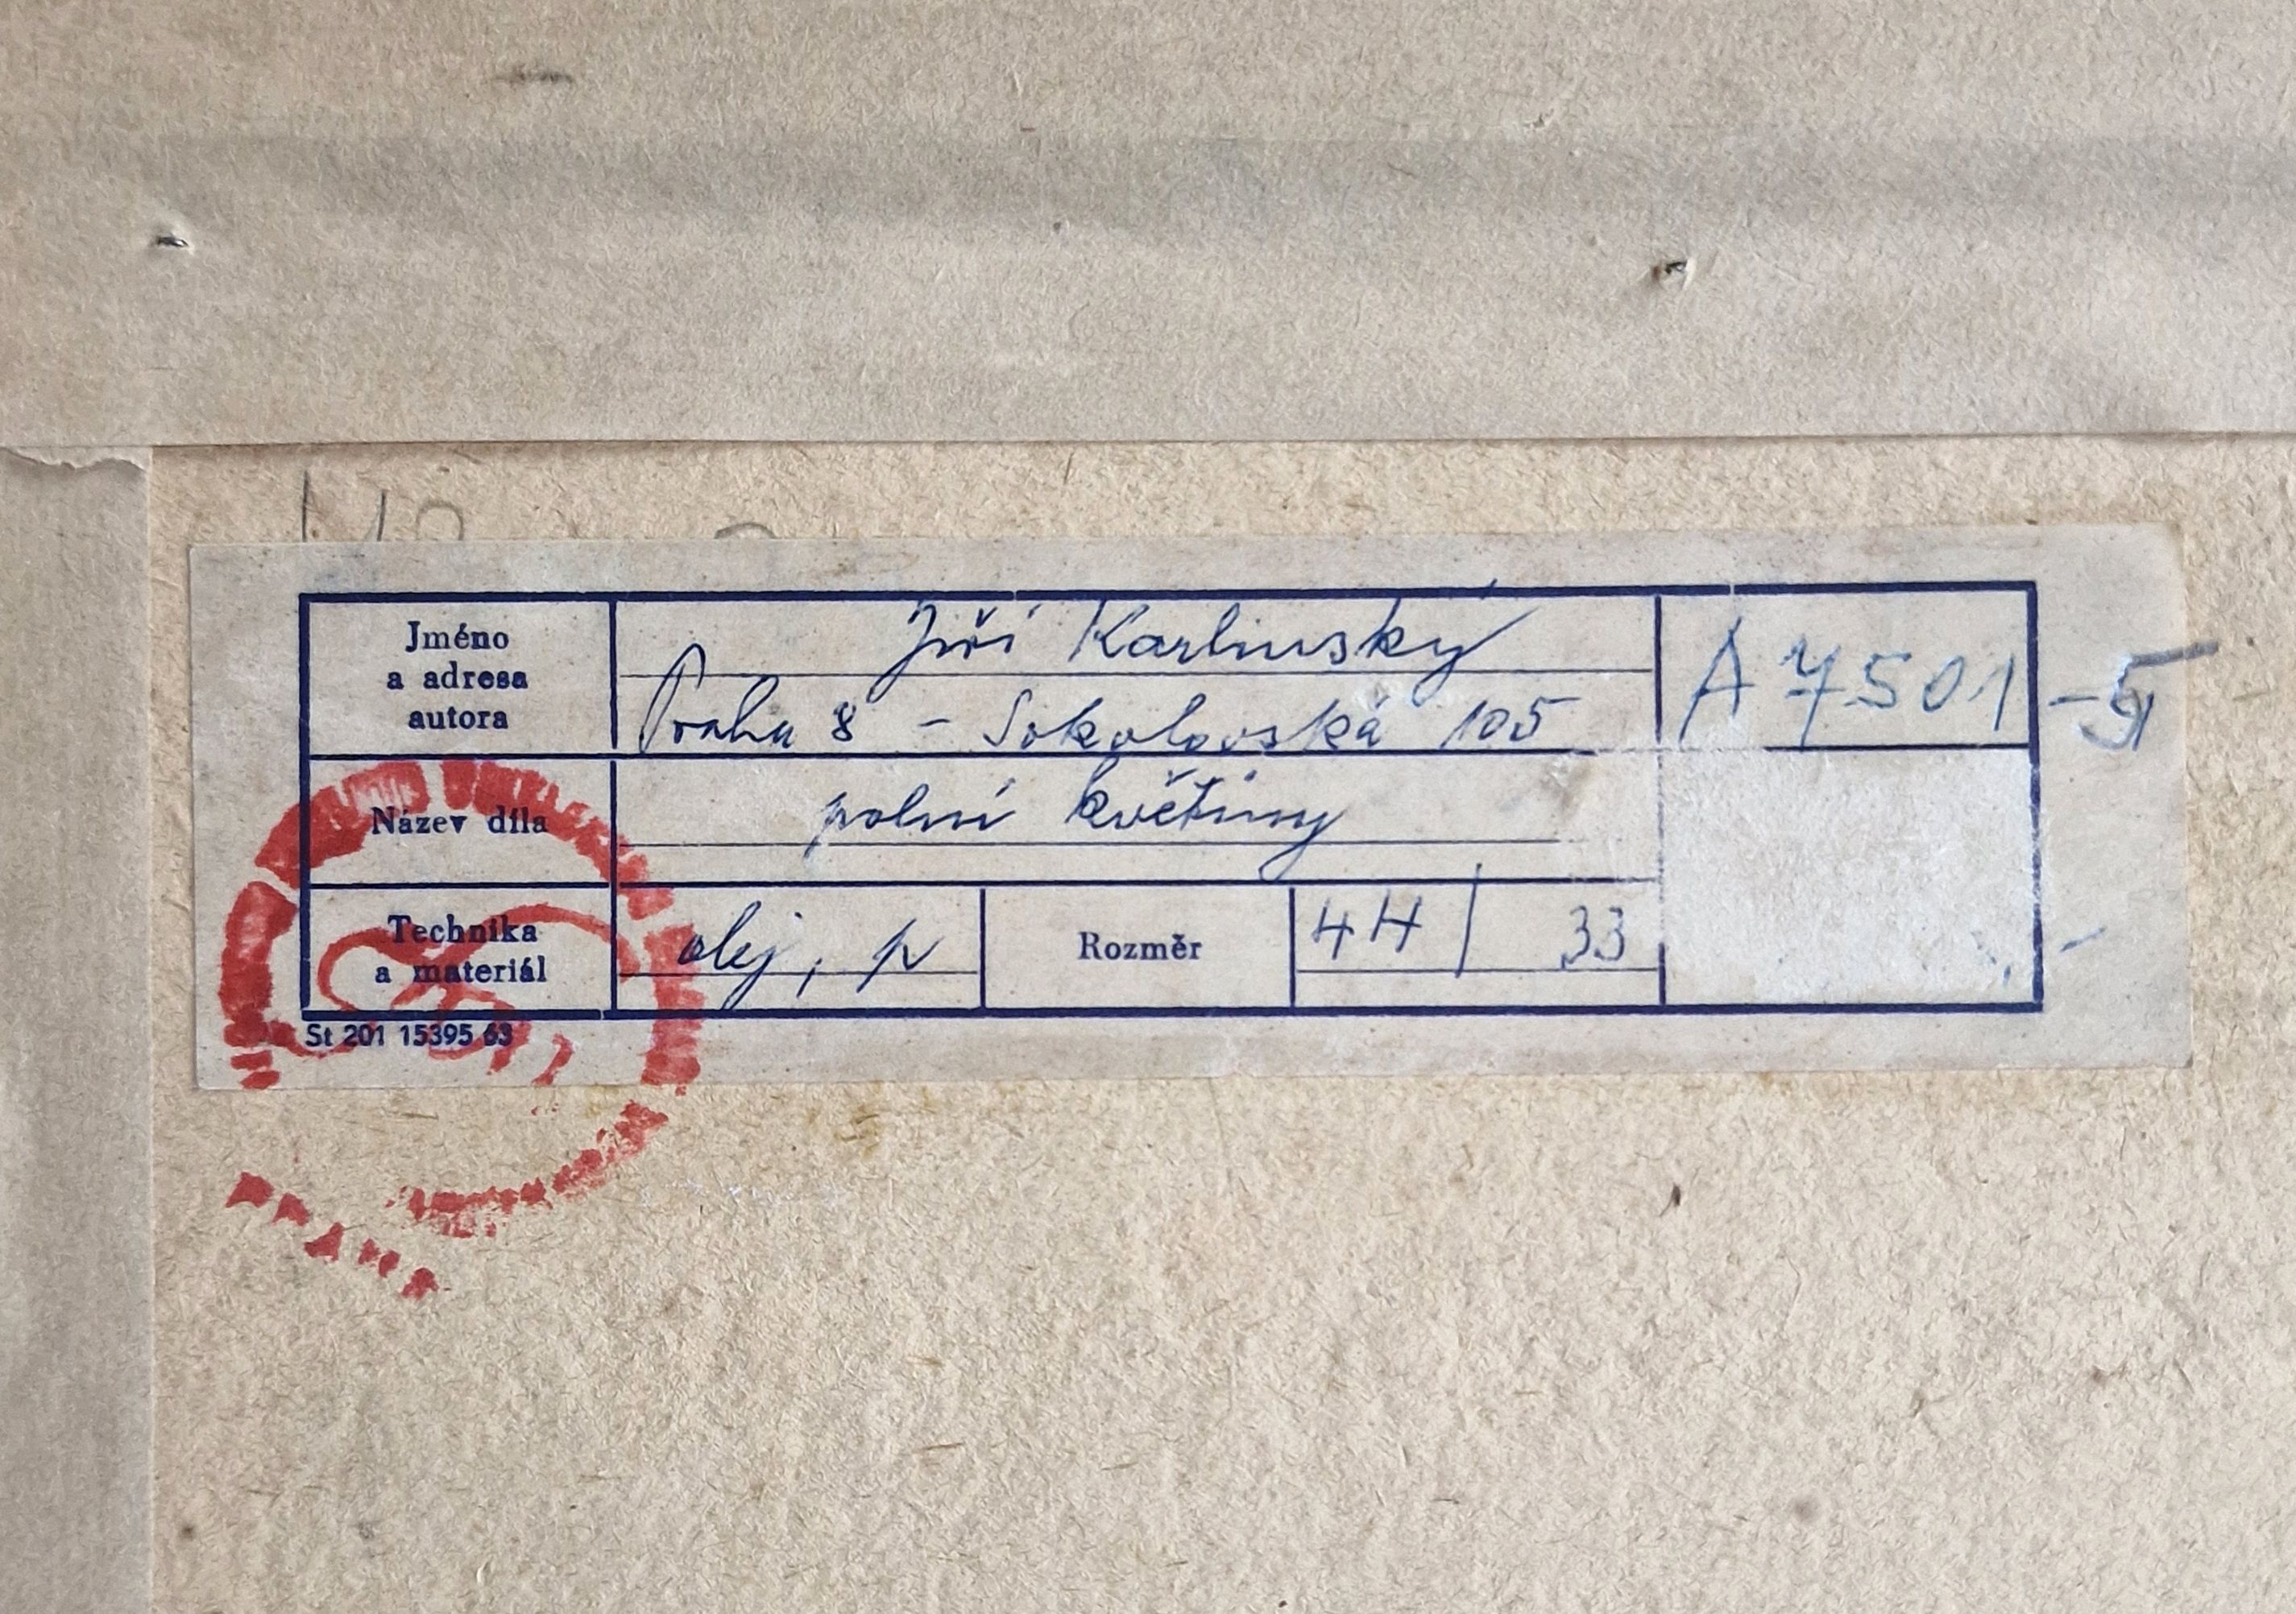 Jméno
a adresa
autora
Jiří Karlinský
Praha 8 - Sokolovská 105
A 7501 -5
Název díla
polní květiny
Technika
a materiál
olej, p
Rozměr
44 / 33
St 201 15395 63